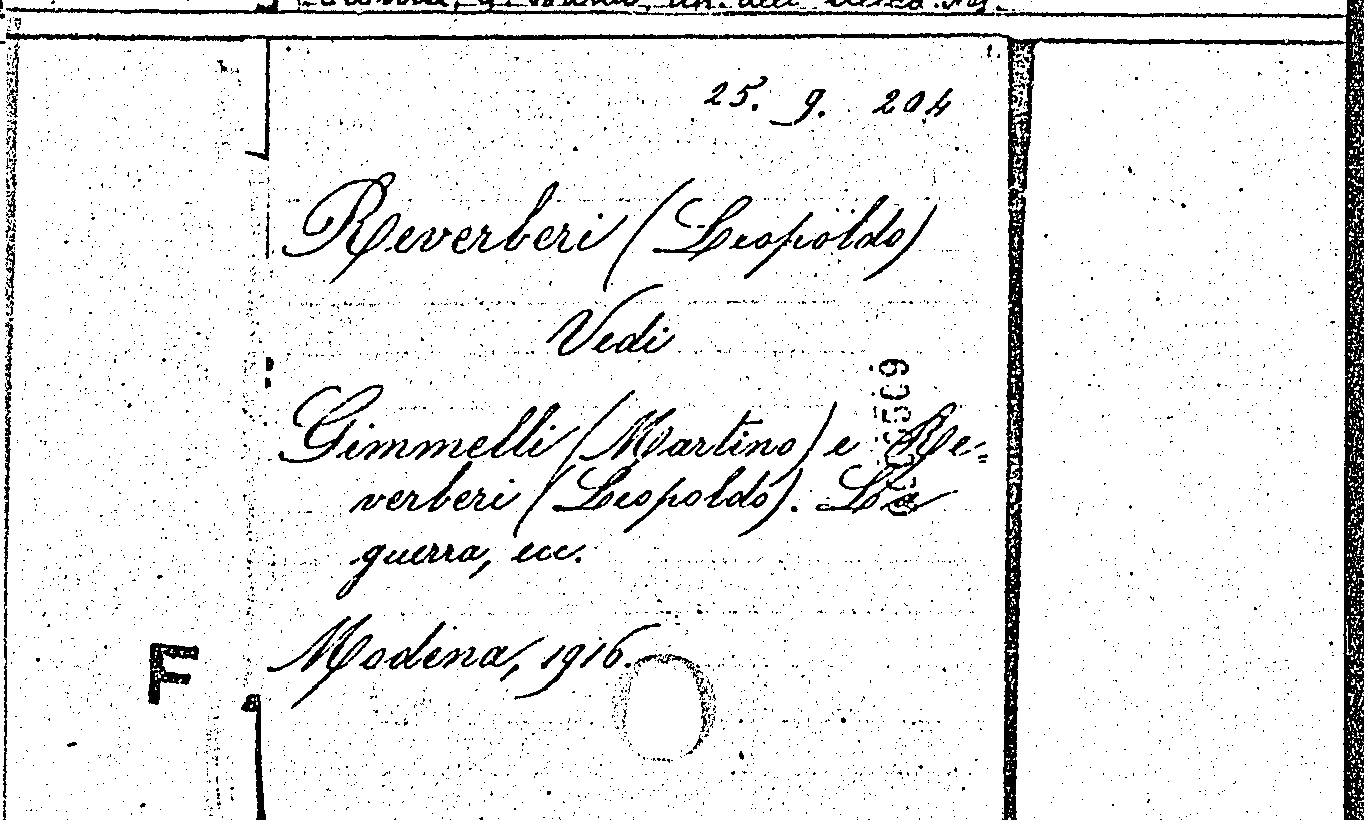 25. g. 204
Reverberi (Leopoldo)
Vedi
Gimmelli (Martino) e Re=
verberi (Leopoldo). La
guerra, ecc.
Modena, 1916.
F